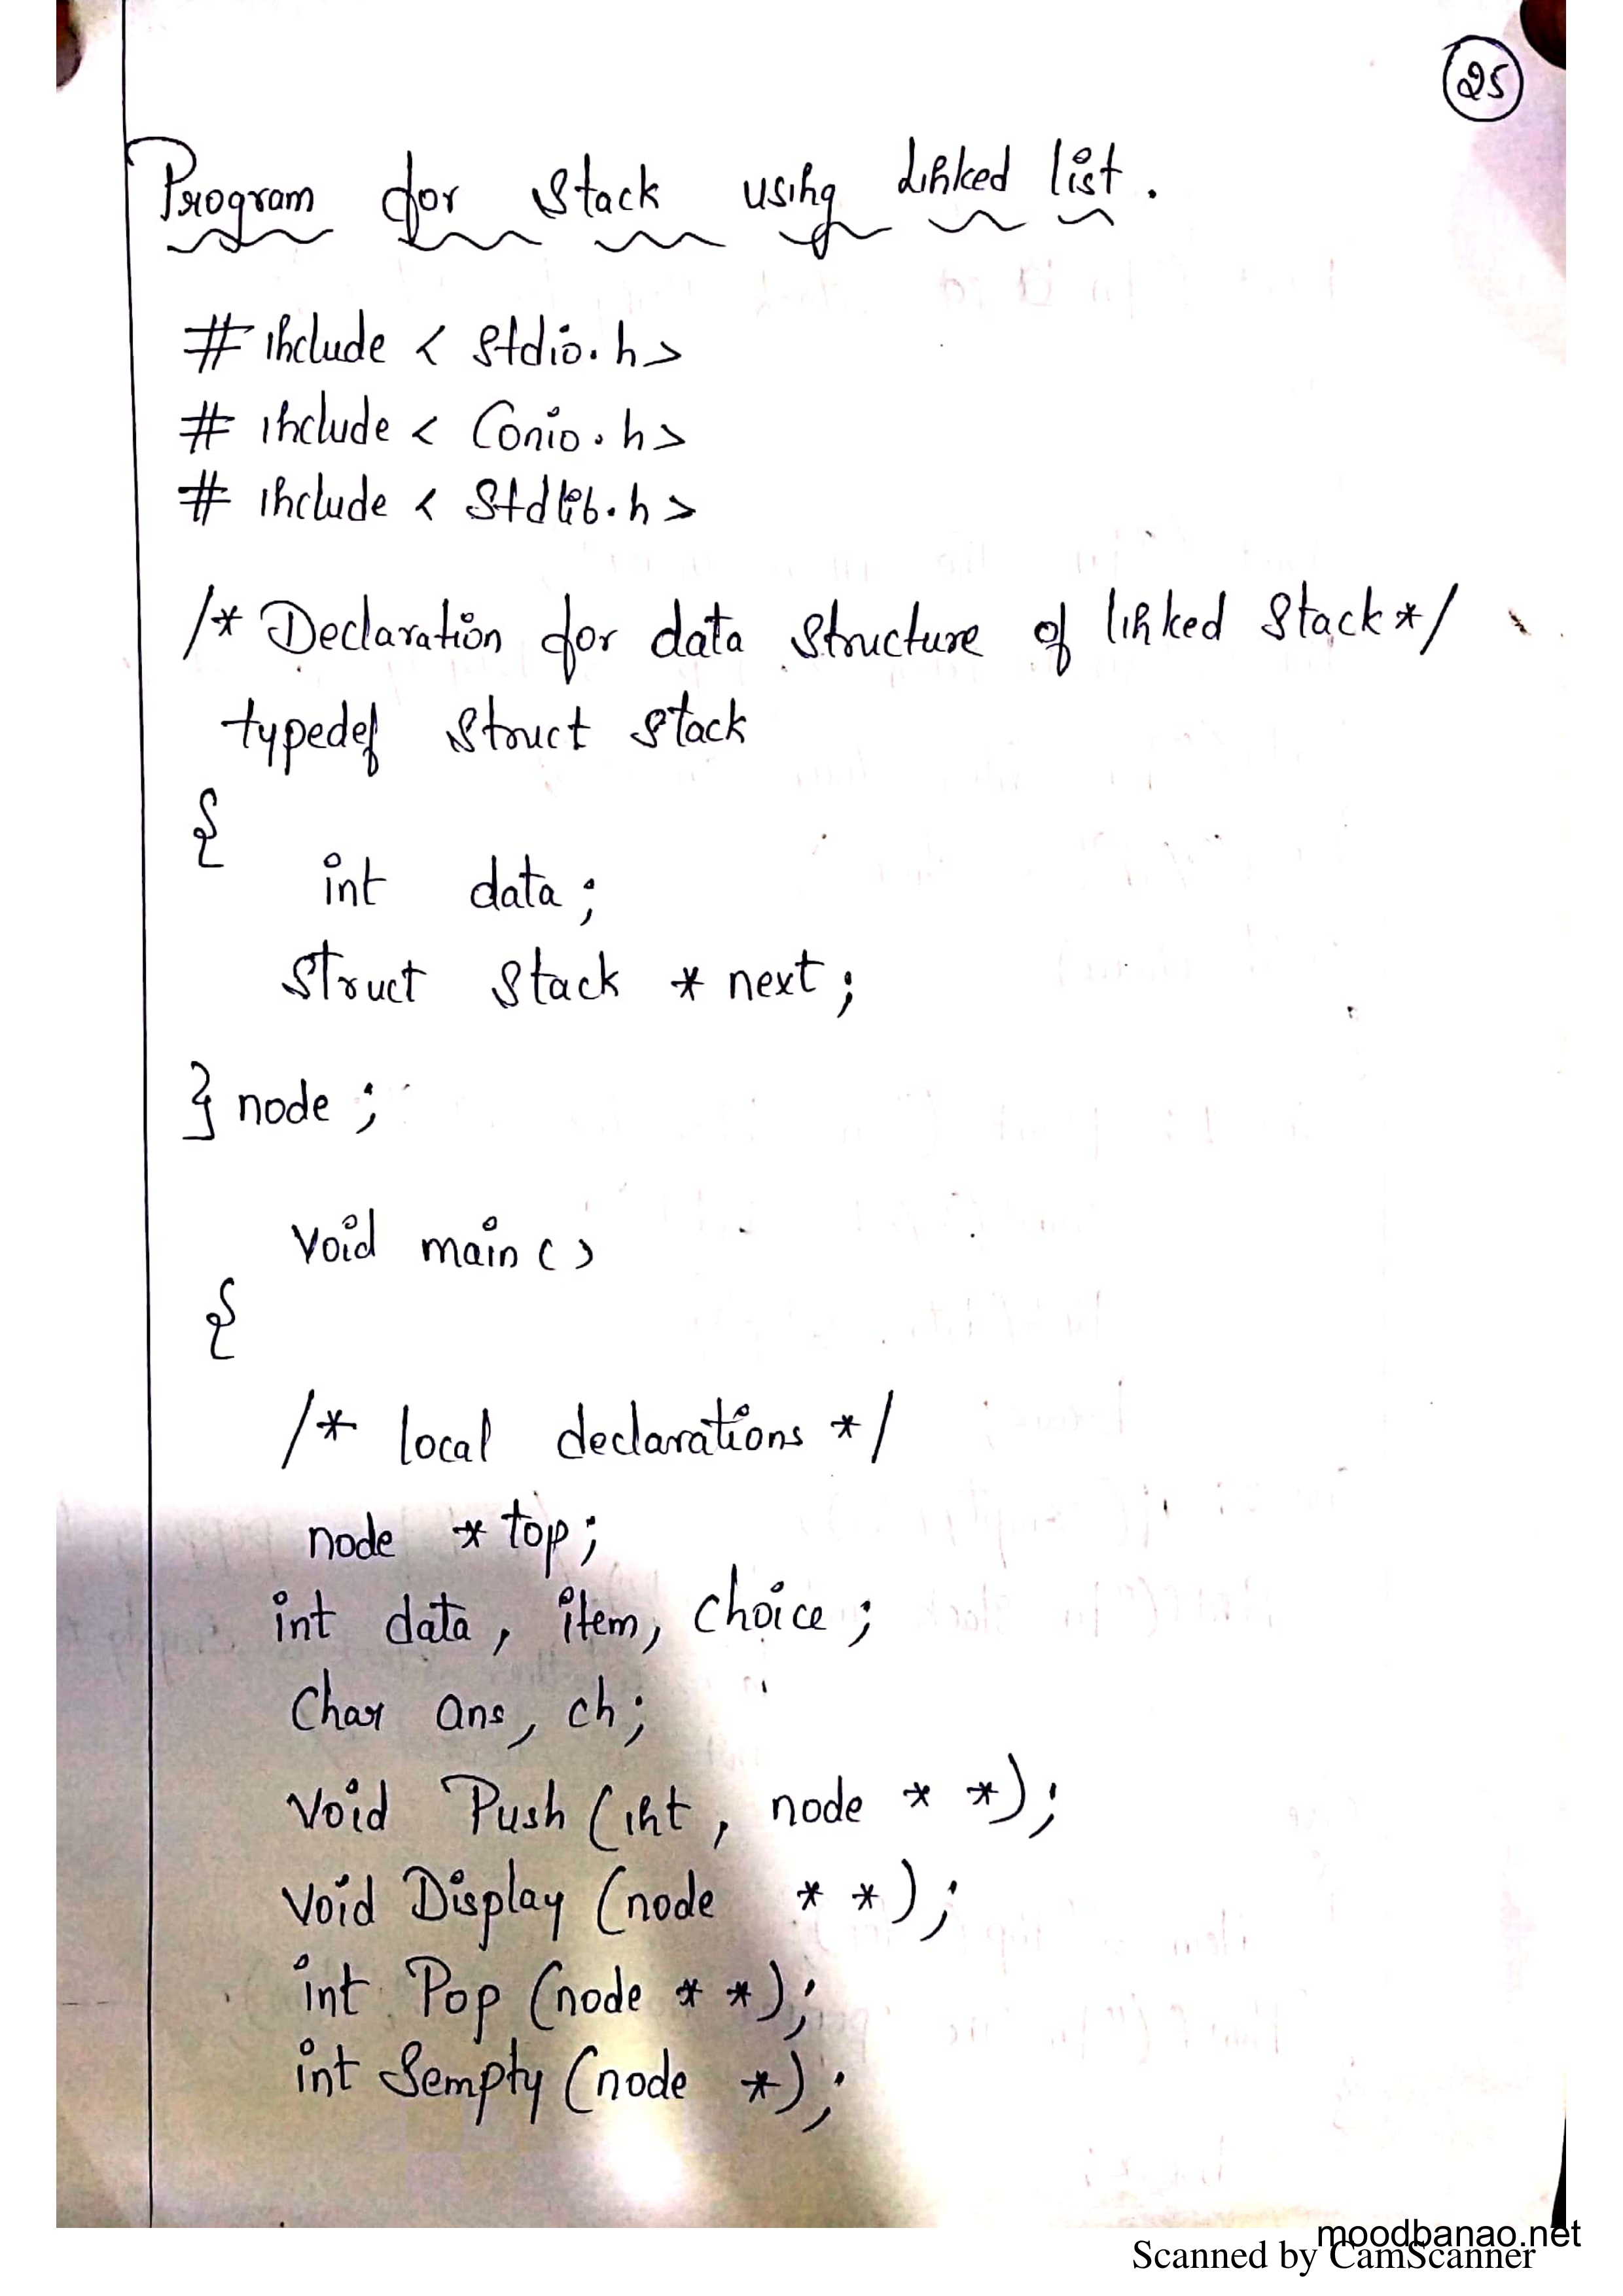 25
Program for Stack using Linked list.
# include < Stdio.h>
# include < Conio.h>
# include < Stdlib.h>
/* Declaration for data structure of linked Stack */
typedef struct stack
{
int data;
struct stack * next;
} node;
void main()
{
/* local declarations */
node * top;
int data, item, choice;
char ans, ch;
void Push (int, node * *);
void Display (node * *);
int Pop (node * *);
int Sempty (node *);
moodbanao.net
Scanned by CamScanner